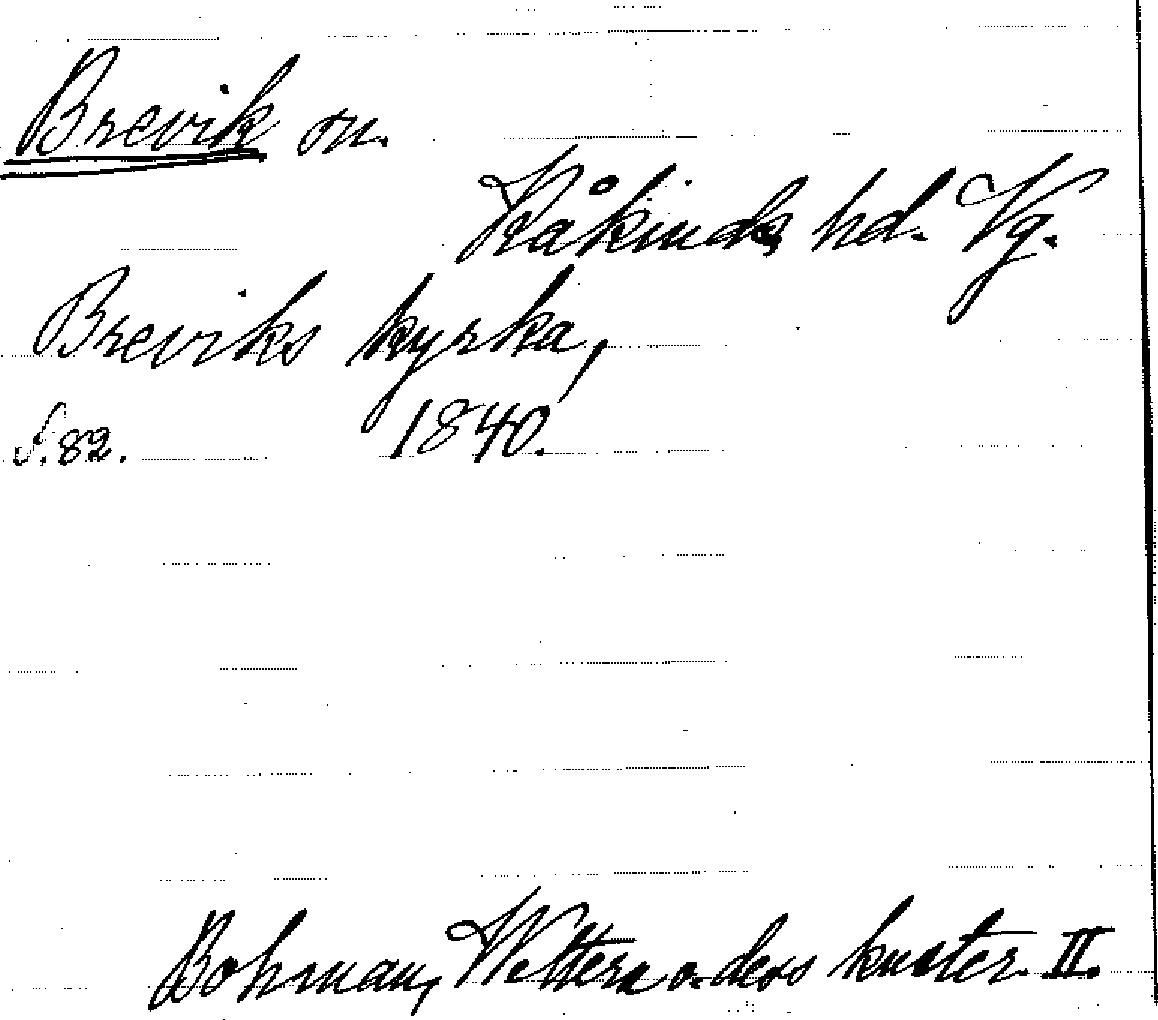 Brevik sn.
Kåkinds hd. Vg.
Breviks kyrka,
S. 82. 1840.
Bohman, Wettern o. dess kuster. II.